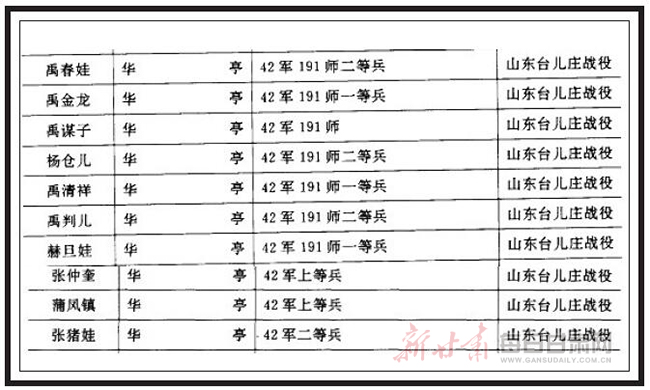 禹春娃 华 亭 42军191师二等兵 山东台儿庄战役
禹金龙 华 亭 42军191师一等兵 山东台儿庄战役
禹谋子 华 亭 42军191师 山东台儿庄战役
杨仓儿 华 亭 42军191师二等兵 山东台儿庄战役
禹清祥 华 亭 42军191师一等兵 山东台儿庄战役
禹判儿 华 亭 42军191师二等兵 山东台儿庄战役
赫旦娃 华 亭 42军191师一等兵 山东台儿庄战役
张仲奎 华 亭 42军上等兵 山东台儿庄战役
蒲凤镇 华 亭 42军上等兵 山东台儿庄战役
张猪娃 华 亭 42军二等兵 山东台儿庄战役
新甘肃 每日甘肃网
WWW.GANSUDAILY.COM.CN